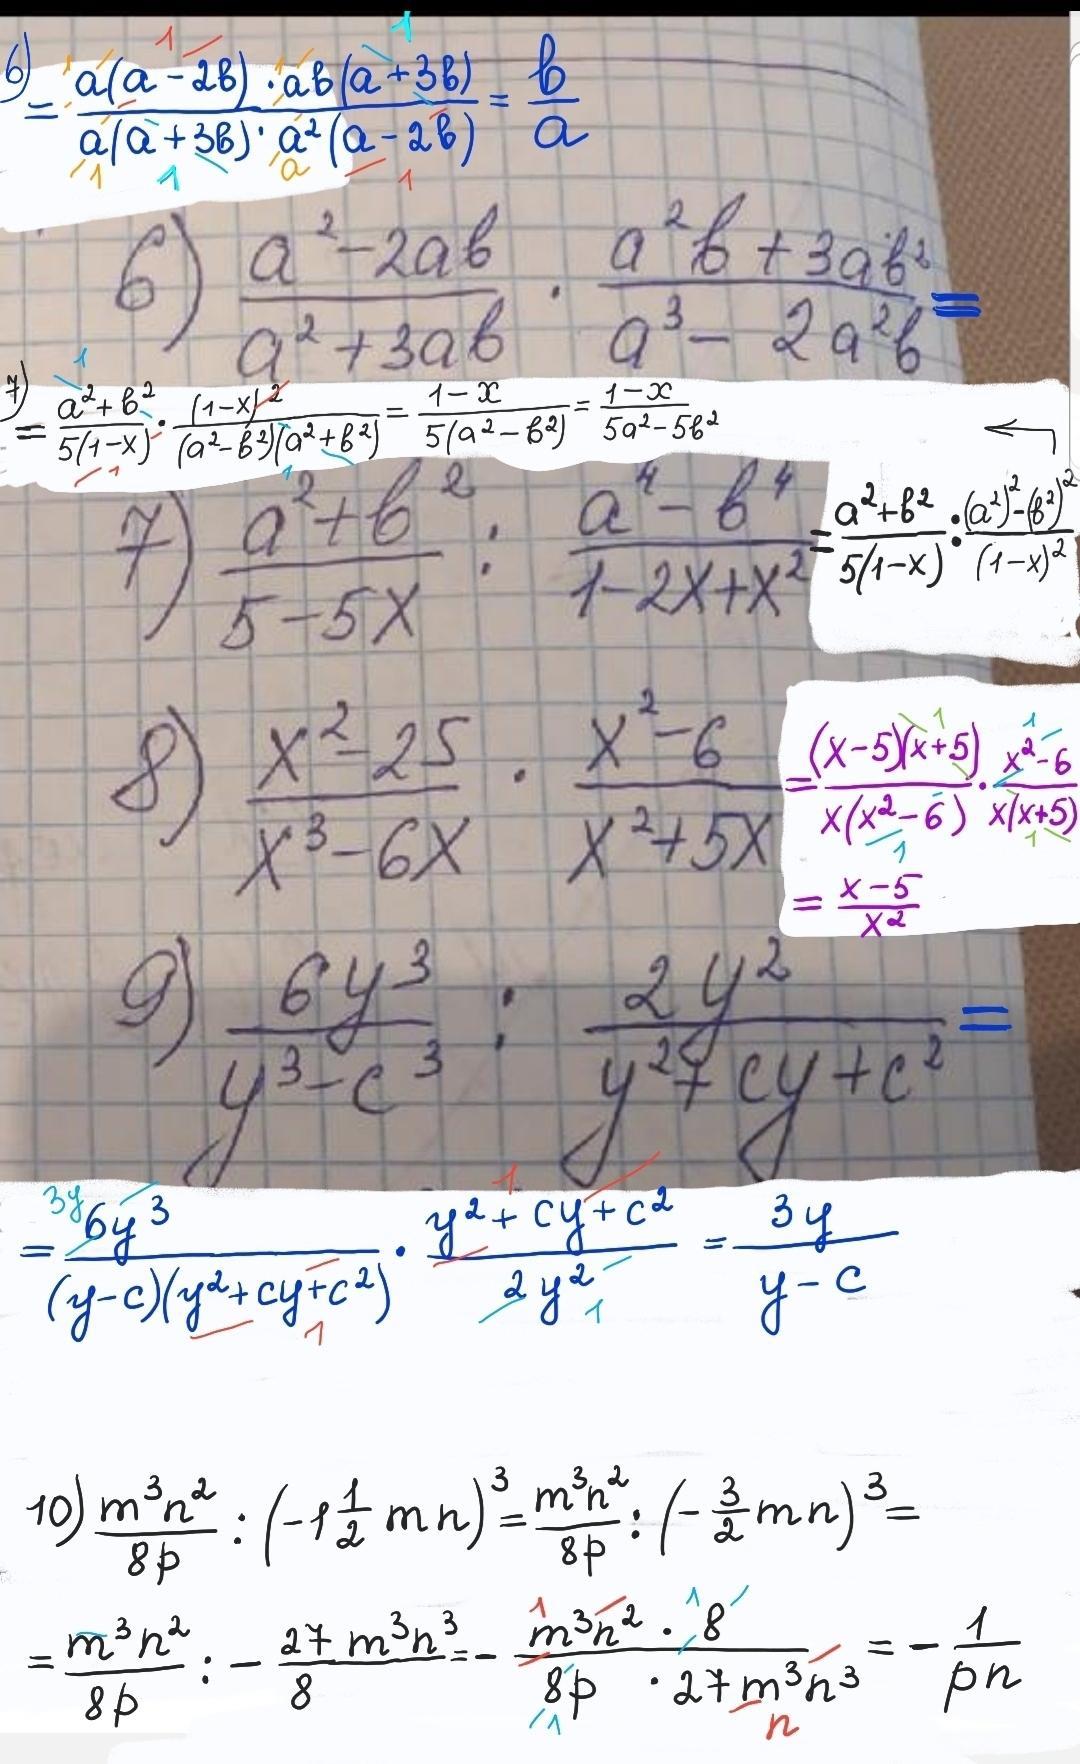 6)
= a(a-2b)·ab(a+3b) / a(a+3b)·a²(a-2b) = b/a
6) a²-2ab / a²+3ab · a²b+3ab² / a³-2a²b =
7)
= a²+b² / 5(1-x) · (1-x)² / (a²-b²)(a²+b²) = 1-x / 5(a²-b²) = 1-x / 5a²-5b²
7) a²+b² / 5-5x : a⁴-b⁴ / 1-2x+x² = a²+b² / 5(1-x) : (a²)²-(b²)² / (1-x)²
8) x²-25 / x³-6x · x²-6 / x²+5x = (x-5)(x+5) / x(x²-6) · x²-6 / x(x+5)
= x-5 / x²
9) 6y³ / y³-c³ : 2y² / y²+cy+c² =
= 6y³ / (y-c)(y²+cy+c²) · y²+cy+c² / 2y² = 3y / y-c
10) m³n² / 8p : (-1 1/2 mn)³ = m³n² / 8p : (-3/2 mn)³ =
= m³n² / 8p : - 27m³n³ / 8 = - m³n²·8 / 8p·27m³n³ = - 1 / pn